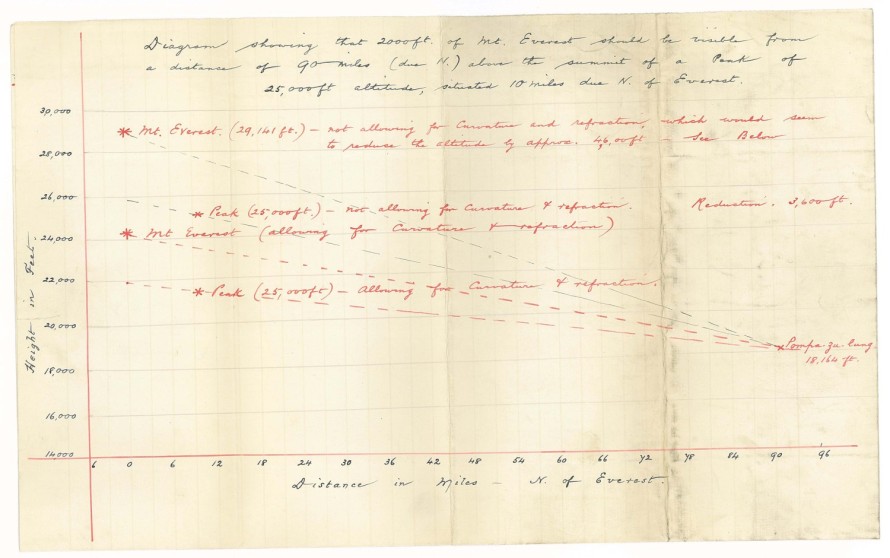 Diagram showing that 2000ft. of Mt. Everest should be visible from
a distance of 90 miles (due N.) above the summit of a Peak of
25,000ft altitude, situated 10 miles due N. of Everest.
30,000
Mt. Everest. (29,141 ft.) – not allowing for Curvature and refraction, which would seem
to reduce the altitude by approx. 4,600ft – See Below
28,000
26,000
Peak (25,000ft.) – not allowing for Curvature & refraction. Reduction. 3,600ft.
Mt Everest (allowing for Curvature & refraction)
24,000
22,000
Peak (25,000ft) – Allowing for Curvature & refraction.
20,000
Pompa-zu-lung
18,164 ft.
18,000
16,000
14000
Height in Feet.
6 0 6 12 18 24 30 36 42 48 54 60 66 72 78 84 90 96
Distance in Miles – N. of Everest.